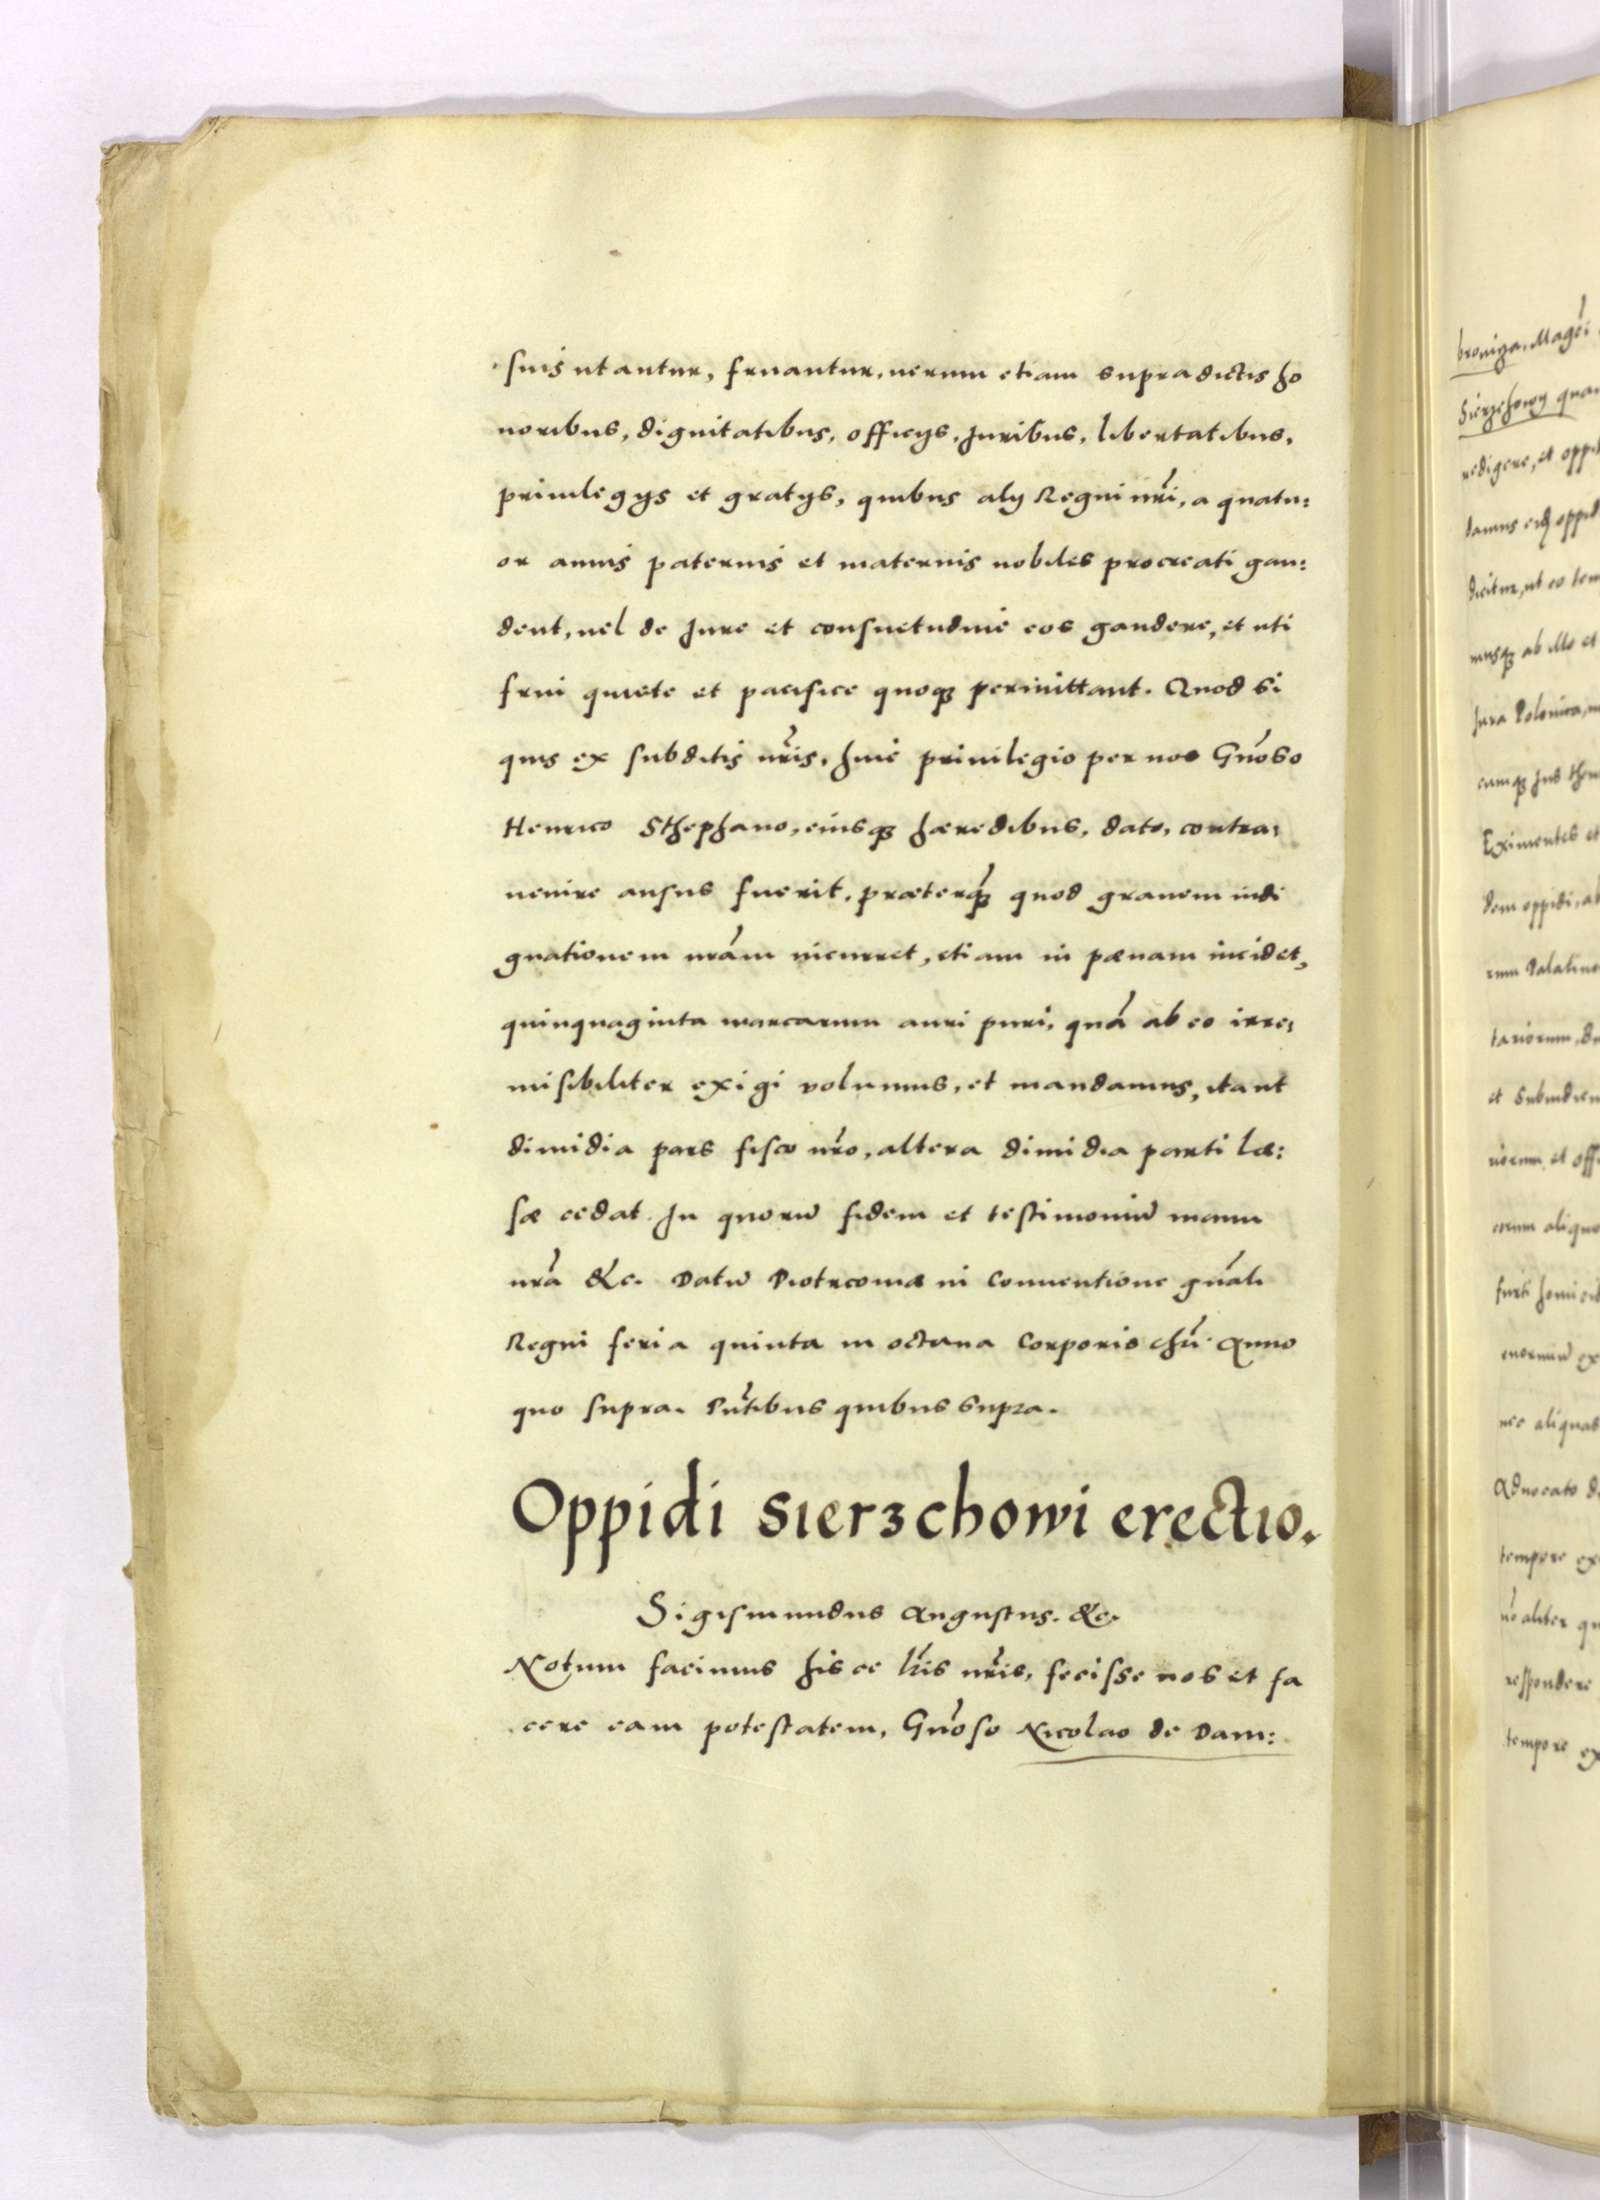 suis utantur, fruantur, uerum etiam supradictis ho
noribus, dignitatibus, officijs, Juribus, libertatibus,
priuilegijs et gratijs, quibus alij Regni nr̃i, a quatu:
or auuis paternis et maternis nobiles procreati gau:
dent, uel de Jure et consuetudine eos gaudere, et uti
frui quiete et pacifice quoqꝫ permittant. Quod si
quis ex subditis nr̃is, huic priuilegio per nos Gnõso
Henrico Sthephano, eiusqꝫ hæredibus, dato, contra:
uenire ausus fuerit, præterqꝫ̃ quod grauem indi
gnationem nrãm incurret, etiam in pænam incidet,
quinquaginta marcarum auri puri, quã ab eo irre:
misibiliter exigi volumus, et mandamus, ita ut
dimidia pars fisco nr̃o, altera dimidia parti læ:
sæ cedat. In quorũ fidem et testimoniũ manu
nrã &c. Datũ Piotrcouiæ in Conuentione gnãli
Regni feria quinta in octaua Corporis chũ. Anno
quo supra. Pñtibus quibus supra.
Oppidi Sierzchowi erectio.
Sigismundus Augustus. &c.
Notum facimus hisce lr̃is nr̃is, fecisse nos et fa
cere eam potestatem, Gnõso Nicolao de Dam:
broniza. Magẽi
Sierzchowy quam
redigere, et oppi
damus eidẽ oppid
dicitur, ut eo tem
musqꝫ ab illo et
Jura Polonica, m
cumqꝫ Jus then
Eximentes et
dem oppidi, ab
rum Palatino
tariorum, du
et Subiudicu
riorum et offi
orum aliquo
furti homicid
enormiũ ex
nec aliquas
Aduocato d
tempore ex
nõ aliter qu
respondere
tempore ex